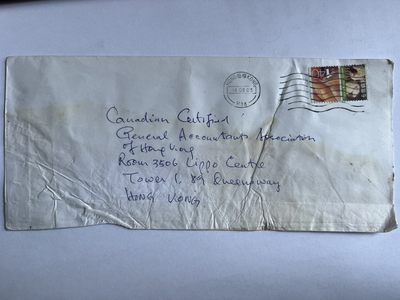 Canadian Certified
General Accountants Association
of Hong Kong
Room 3506 Lippo Centre
Tower 1, 89 Queensway
HONG KONG